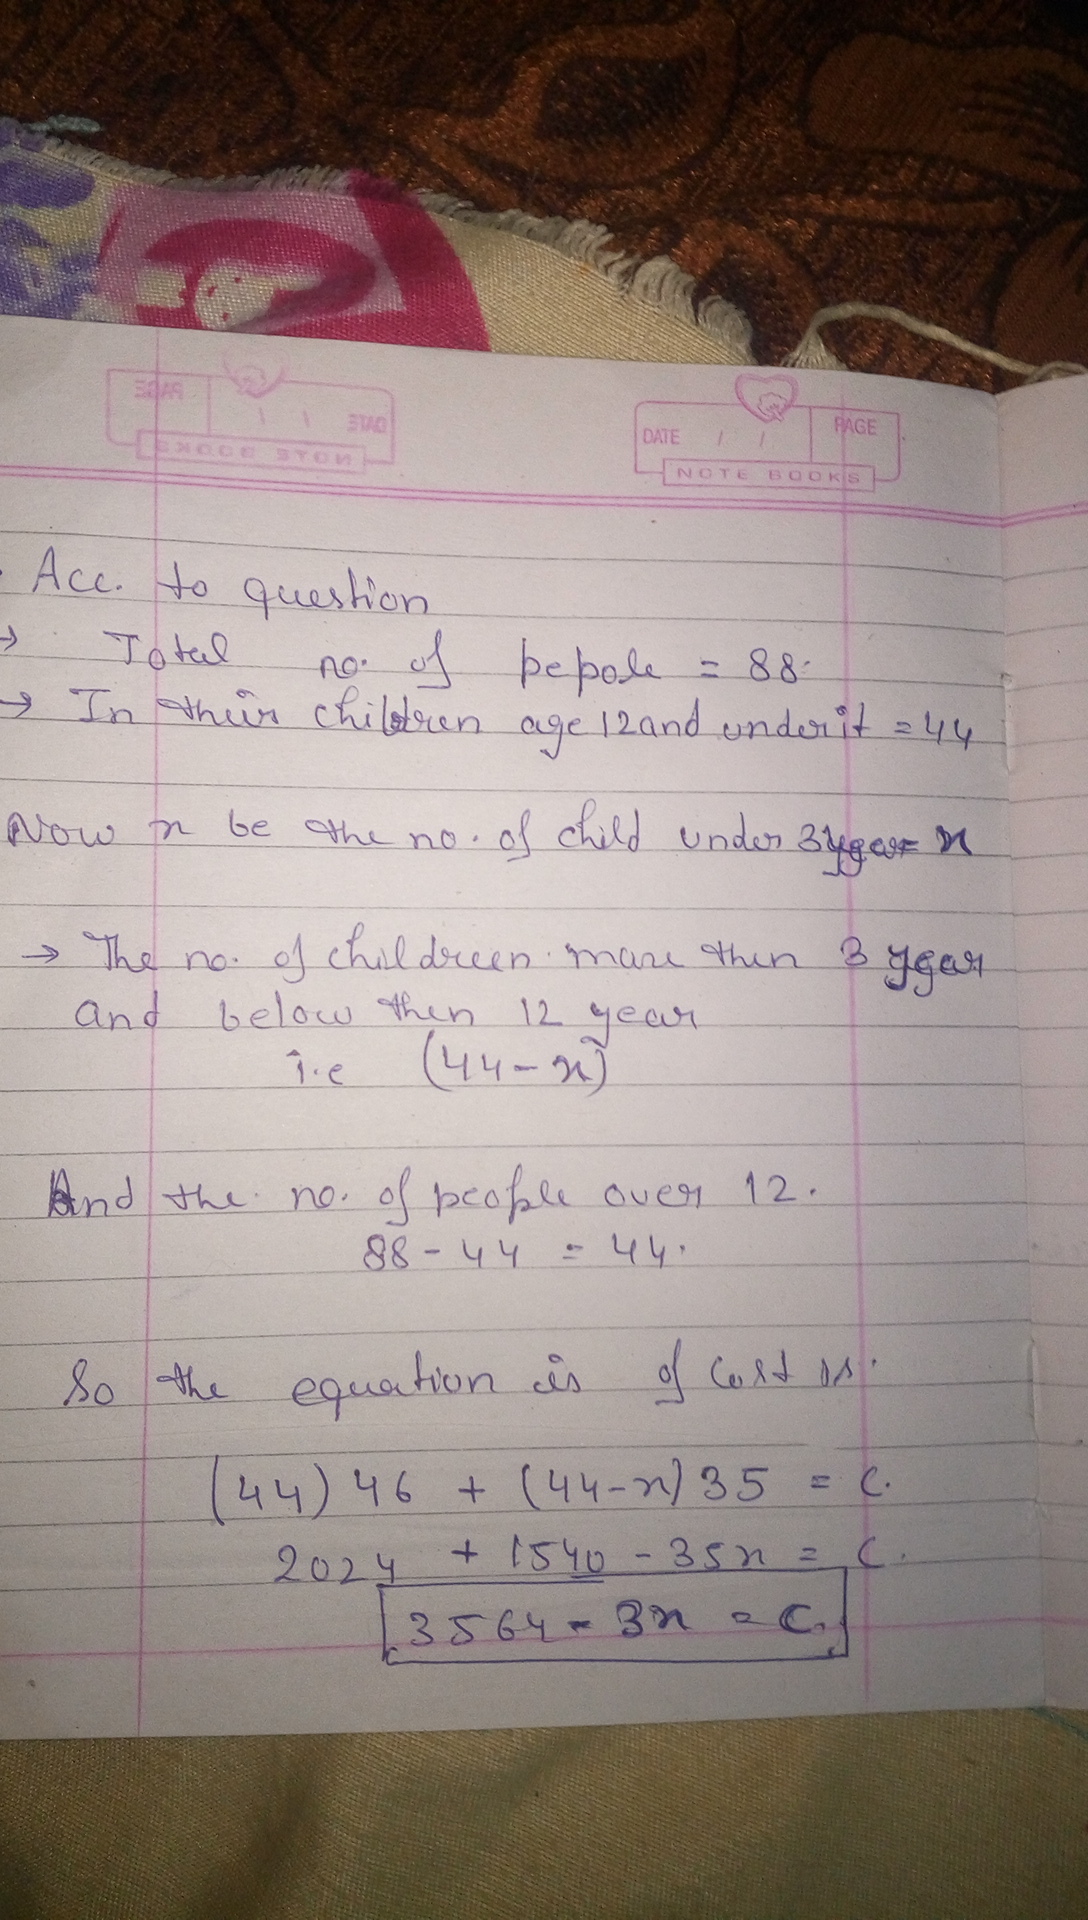 DATE / / PAGE
NOTE BOOKS
Acc. to question
→ Total no. of pepole = 88.
→ In their children age 12 and under it = 44
Now x be the no. of child under 3 ygar = x
→ The no. of childreen more then 3 ygar
and below then 12 year
i.e (44-x)
And the no. of people over 12.
88 - 44 = 44.
So the equation is of cost is.
(44) 46 + (44-x) 35 = C.
2024 + 1540 - 35x = C.
3564 - 3x = C.